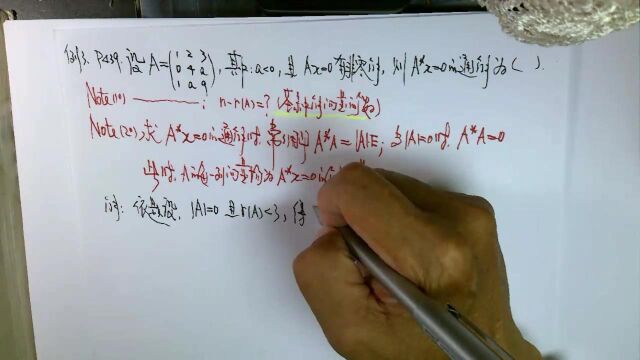 例3. P439. 设 A=(1 2 3 0 4 a 1 a 9), 其中: a<0, 且 Ax=0有非零解, 则 A*x=0的通解为( ).
Note(1°) ———— ; n-r(A)=? (基础解系中解向量的个数)
Note(2°) 求 A*x=0的通解时, A*A=|A|E; 当|A|=0时, A*A=0
此时, A的每一列向量均为A*x=0的
解: 依题设, |A|=0 且 r(A)<3, 得